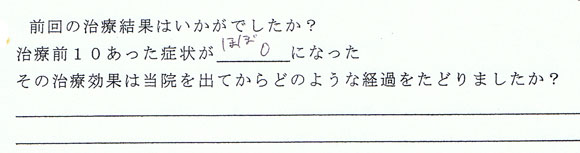 前回の治療結果はいかがでしたか？
治療前１０あった症状がほぼ０になった
その治療効果は当院を出てからどのような経過をたどりましたか？